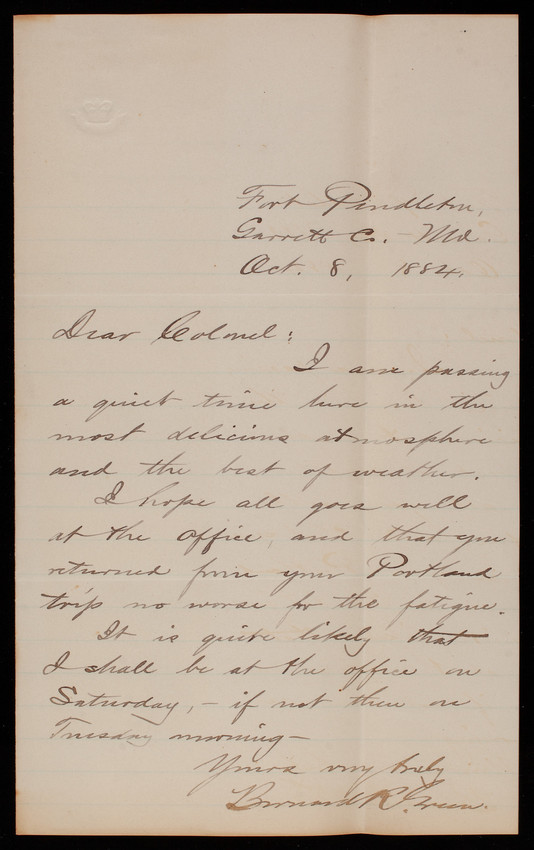 Fort Pendleton,
Garrett Co. - Md.
Oct. 8, 1884.
Dear Colonel:
I am passing
a quiet time here in the
most delicious atmosphere
and the best of weather.
I hope all goes well
at the office, and that you
returned from your Portland
trip no worse for the fatigue.
It is quite likely that
I shall be at the office on
Saturday, - if not then on
Tuesday morning -
Yours very truly
Bernard R. Green.